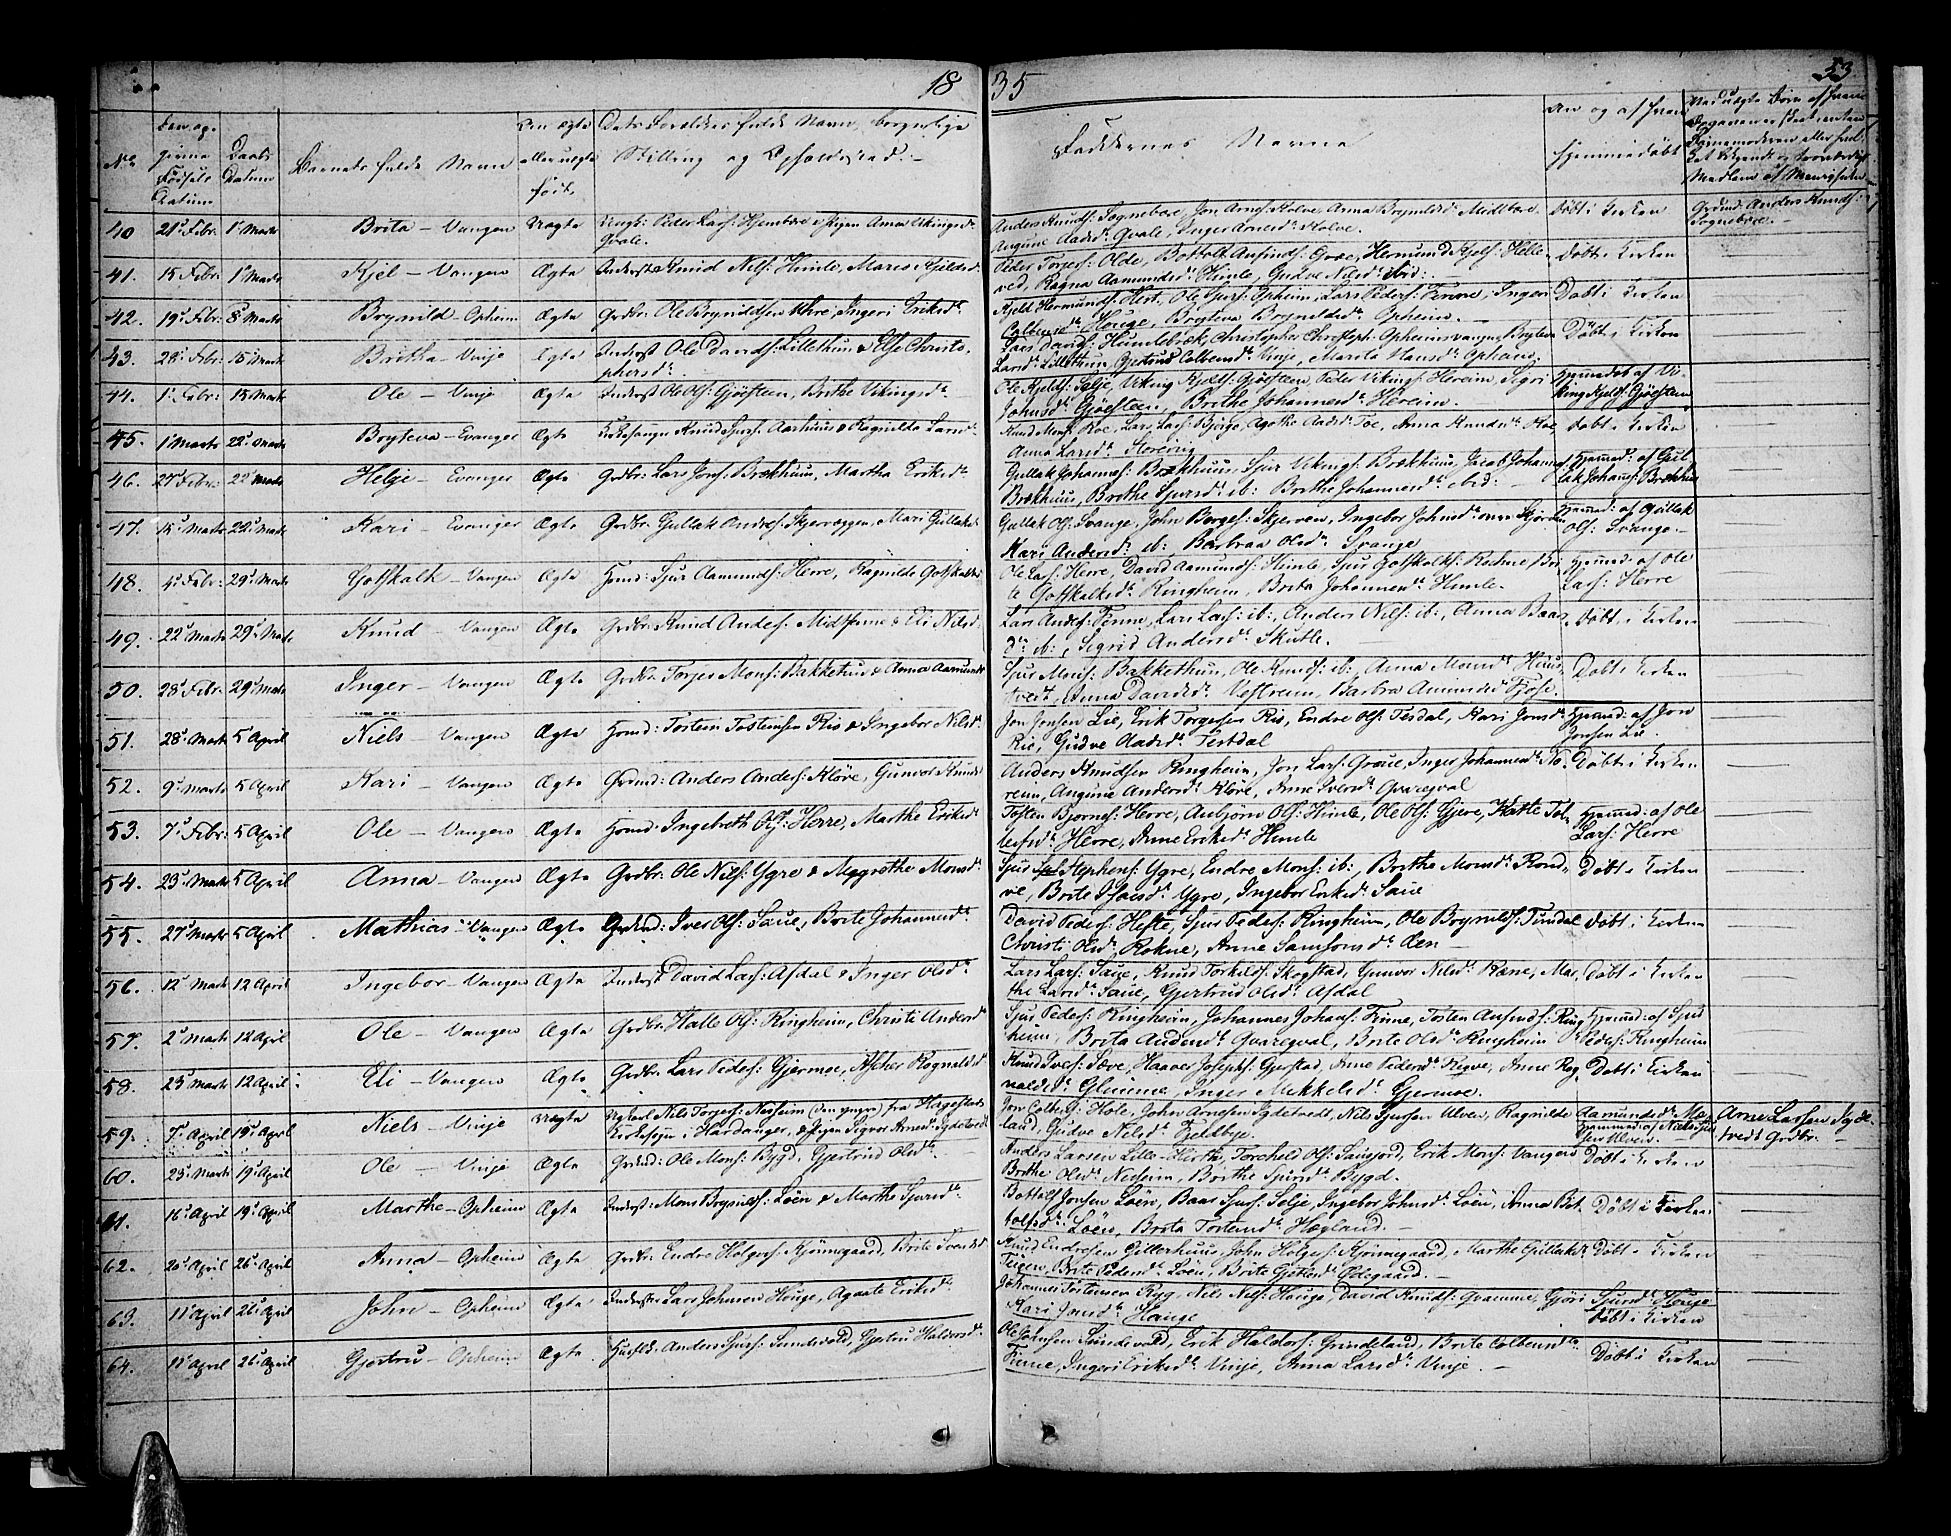 18
35
53
No
Den opgivne Fødsels Datum
Daabs Datum
Barnets fulde Navn
Om ægte eller uægte født
Dets Forældres fulde Navn, borgerlige Stilling og Opholdssted
Faddernes Navne
Om og af hvem hjemmedøbt
40 21de Febr: 1te Marts Brita – Vangen Uægte Peder Lars: Pigen Anna Vikingsd:
Qvale.
Anders Knuds: Sognebøe, Jon Arnes: Holve, Anna Brynilds: Midtbøe
Augune Aadsd: Qvale, Inger Arnesd: Holve.
Døbt i Kirken
Grdmd: Anders Knuds: Sognebøe.
41. 15 Febr: 1te Marts Kjel – Vangen Ægte Inderst Knud Nils: Himle, Mares Kjeldsd
Peder Torjes: Olde, Botholt Aufinds: Hermund Kjels: Helleved, Ragna Aamundsd: Himle, Gudve Nilsd: ibid:
Døbt i Kirken
42. 19de Febr: 8 Marts Brynild – Opheim Ægte Grdbr: Ole Brynildsen Uhre, Ingeri Eriksd:
Kjeld Hermunds: Hest, Ole Sjurs: Opheim, Lars Peders: Finne, Ingeri
Colbensd: Houge, Bryteva Brynildsd: Opheim.
Døbt i Kirken
43. 28de Febr: 15 Marts Britha – Vinje Ægte Inderst Ole Davids: Lillethun & Else Christophersd:
Lars Davids: Humlebræk, Christopher Christoph: Opheimsvangen, Bryteva
Larsd: Lillethun, Gjertrud Colbensd: Vinje, Marita Hansd: Opheim.
Døbt i Kirken
44. 1 Febr: 15 Marts Ole – Vinje Ægte Inderst Ole Ols: Gjøesteen, Brithe Vikingsd:
Ole Kjelds: Selje, Viking Kjelds: Gjøesteen, Peder Vikings: Herein, Sigri
Johnsd: Gjøesteen, Brithe Johannesd: Herein.
Hjemmedøbt af Viking Kjelds: Gjøesteen
45. 1 Marts 22de Marts Bryteva – Evanger Ægte Kirkesanger Knud Sjurs: Aarhuus & Ragnilda Larsd:
Knud Mons: Roe, Lars Lars: Bjørge, Agathe Aadsd: Toe, Anna Knudsd: Roe,
Anna Larsd:
Døbt i Kirken
46. 27de Febr: 22de Marts Helge – Evanger Ægte Grdbr: Lars Jons: Brækhuus, Martha Eriksd:
Gullak Johannes: Brækhuus, Sjur Vikings: Brækhuus, Jacob Johannes:
Brækhuus, Brithe Sjursd: ib: Brithe Johannesd: ibid:
Hjemmd: af Gullak Johans: Brækhuus
47. 15 Marts 22de Marts Kari – Evanger Ægte Grdbr: Gullak Andres: Skjerveggen, Mari Gullaksd:
Gullak Ols: Svange, John Borges: Skjerven, Ingebor Johnsd:
Kari Andersd: ib: Barbraa Olsd: Svange
Hjemmd: af Gullak Ols: Svange
48. 4de Febr: 29de Marts Gotskalk – Vangen Ægte Hmd: Sjur Aamunds: Herre, Ragnilda Gotskalksd:
Ole Lars: Herre, David Aamunds: Himle, Sjur Gotskalks: Rockne, Brite Gotskalksd: Ringheim, Brita Johannesd: Himle.
Hjemmd: af Ole Lars: Herre
49. 22de Marts 29de Marts Knud – Vangen Ægte Grdbr: Knud Andes: Midtfinne & Eli Nilsd:
Lars Andes: Finne, Lars Lars: ib:, Anders Nils: ib:, Anna Baarsd: ib:, Sigrid Andersd: Skutle.
Døbt i Kirken
50. 28de Febr: 29de Marts Inger – Vangen Ægte Grdbr: Torjes Mons: Bakkethun & Anna Aamunds:
Sjur Mons: Bakkethun, Ole Knuds: ib:, Anna Monsd: Huustvedt, Anna Davidsd: Vestrem, Barbra Amundsd: Fjose.
Døbt i Kirken
51. 28de Marts 5 April Niels – Vangen Ægte Hmd: Tostein Tosteinsen Ris & Ingebor Nilsd:
Jon Jonsen Lie, Erik Torgersen Ris, Endre Ols: Tesdal, Kari Jonsd:
Ris, Gudve Aadsd: Testdal
Hjemmd: af Jon Jonsen Lie
52. 9de Marts 5 April Kari – Vangen Ægte Grdmd: Anders Andes: Kløve, Gunvor Knudsd:
Anders Knudsen Ringheim, Jon Lars: Inger Johannesd:
Augune Andersd: Kløve, Anne Iversd: Qvaregval
Døbt i Kirken
53. 7de Febr: 5 April Ole – Vangen Ægte Hmd: Ingebreth Ols: Herre, Marthe Eriksd:
Tosten Bjørnes: Herre, Aubjørn Ols: Himle, Ole Ols: Gjere,
Herre, Anne Eriksd: Himle
Hjemmd: af Ole Lars: Herre
54. 23de Marts 5 April Anna – Vangen Ægte Grdbr: Ole Nils: Ygre & Maggrethe Monsd:
Sjur Stephens: Ygre, Endre Mons: ib: Brithe Monsd: Rondve, Brite Ygre, Ingebor Eriksd: Saue
Døbt i Kirken
55. 27de Marts 5 April Mathias – Vangen Ægte Grdmd: Iver Ols: Saue, Brite Johannesd:
David Peders: Hefte, Sjur Peders: Ringheim, Ole Brynilds: Tindal
Christi Olsd: Rokne, Anne Samsonsd: Øen
Døbt i Kirken
56. 12de Marts 12 April Ingebor – Vangen Ægte Inderst David Lars: Afdal & Inger Olsd:
Lars Lars: Saue, Knud Torkilds: Skogstad, Gunvor Nilsd: Ræne, Marthe Larsd: Saue, Gjertrud Olsd: Afdal
Døbt i Kirken
57. 2de Marts 12 April Ole – Vangen Ægte Grdbr: Halle Ols: Ringheim, Christi Andersd
Sjur Peders: Ringheim, Johannes Johans: Finne, Tosten Aufinds: Ringheim, Brita Andersd: Qvaregval, Brite Olsd: Ringheim
Hjemmd: af Sjur Peders: Ringheim
58. 23de Marts 12 April: Eli – Vangen Ægte Grdbr: Lars Peders: Gjermoe, Rognaldsd
Knud Ives: Sæve, Haaver Josephs: Gjerstad, Anne Pedersd: Anne Rognvaldsd: Glimme, Inger Mikkelsd: Gjermoe.
Døbt i Kirken
59. 7de April 19de April Niels – Vinje Uægte Ungkarl Nils Torjes: Nesheim (den yngre) fra
Kirkesogn i Hardanger, & Pigen Sigvor Arnesd: Sydetvedt
Jon Colbens: Hole, John Arnesen Sydetvedt, Nils Sjursen Ulven, Ragnilda Aamundsd:
Gudve Nilsd: Fjeldbye.
Hjemmd: af Niels Sjur: Ulven
Arne Larsen Sydetvedt Grdbr:
60. 23de Marts 19de April Ole – Vinje Ægte Grdmd: Ole Mons: Bygd, Gjertrud Olsd:
Anders Larsen Lille-Herth, Torcheld Ols: Saugjord, Erik Mons: Vangen
Brithe Olsd: Nesheim, Borthe Sjursd: Bygd.
Døbt i Kirken
61. 16de April 19de April Marthe – Opheim Ægte Inderst: Mons Brynilds: Løen & Marthe Sjursd:
Bottolf Jonsen Løen, Baar Sjurs: Selje, Ingebor Johnsd: Løen, Anna Bottolfsd: Løen, Brita Torstensd: Hægland.
Døbt i Kirken
62. 20de April 26de April Anna – Opheim Ægte Grdbr: Endre Holgers: Kjønnegaard, Brite Svendsd
Knud Endresen Gillerhuus, John Holges: Kjønnegaard, Marthe Gullaksd:
Teigen, Brite Pedersd: Løen, Brite Ødegaard.
Døbt i Kirken
63. 11 April 26de April John – Opheim Ægte Inderst: Lars Johnsen Houge, Agaate Eriksd:
Johannes Tosteinsen Ryg, Nils Nels: Hauge, David Knuds: Gramme, Gjøri Sjursd: Houge
Kari Jonsd: Hauge
Døbt i Kirken
64. 15 April 26de April Gjertru – Opheim Ægte Huusfd: Anders Sjurs: Sundevold, Gjertru Haldorsd:
Ole Johnsen Sundevold, Erik Haldors: Grindeland, Brite Colbensd:
Finne, Ingeri Eriksd: Vinje, Anna Larsd: Vinje.
Døbt i Kirken